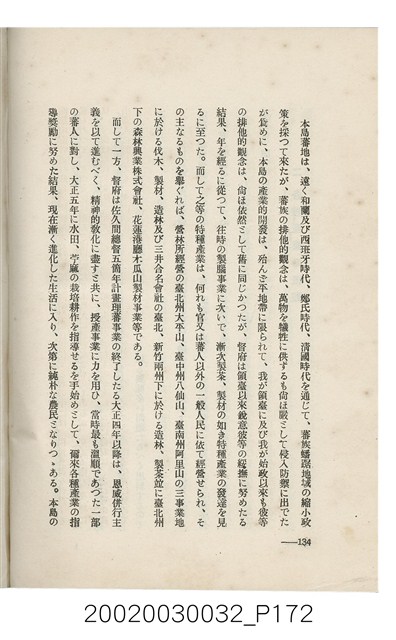 本島蕃地は、遠く和蘭及び西班牙時代、鄭氏時代、淸國時代を通じて、蕃族蟠踞地域の縮小政
策を採つて來たが、蕃族の排他的觀念は、萬物を犠牲に供するも尙ほ嚴として侵入防禦に出でた
が爲めに、本島の產業的開發は、殆んど平地帶に限られて、我が領臺に及び我が始政以來も彼等
の排他的觀念は、尙ほ依然として舊に同じかつたが、督府は領臺以來銳意彼等の綏撫に努めたる
結果、年を經るに從つて、往時の製腦事業に次いで、漸次製茶、製材の如き特種產業の發達を見
るに至つた。而して之等の特種產業は、何れも官又は蕃人以外の一般人民に依て經營せられ、そ
の主なるものを擧ぐれば、營林所經營の臺北州大平山、臺中州八仙山、臺南州阿里山の三事業地
に於ける伐木、製材、造林及び三井合名會社の臺北、新竹兩州下に於ける造林、製茶並に臺北州
下の森林興業株式會社、花蓮港廳木瓜山製材事業等である。
而して一方、督府は佐久間總督五箇年計畫理蕃事業の終了したる大正四年以降は、恩威併行主
義を以て進むべく、精神的敎化に盡すと共に、授產事業に力を用ひ、當時最も溫順であつた一部
の蕃人に對し、大正五年に水田、苧麻の栽培耕作を指導せるを手始めとして、爾來各種產業の指
導奬勵に努めた結果、現在漸く進化した生活に入り、次第に純朴な農民となりつゝある。本島の
134
20020030032_P172